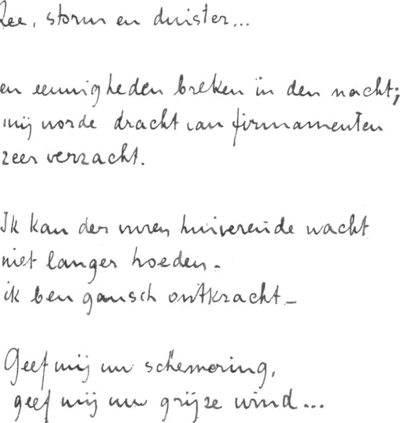 Zee, storm en duister...
en eeuwigheden breken in den nacht;
mij worde dracht van firmamenten
zeer verzacht.
Ik kan der uren huiverende wacht
niet langer hoeden -
ik ben gansch ontkracht -
Geef mij uw schemering,
geef mij uw grijze wind...